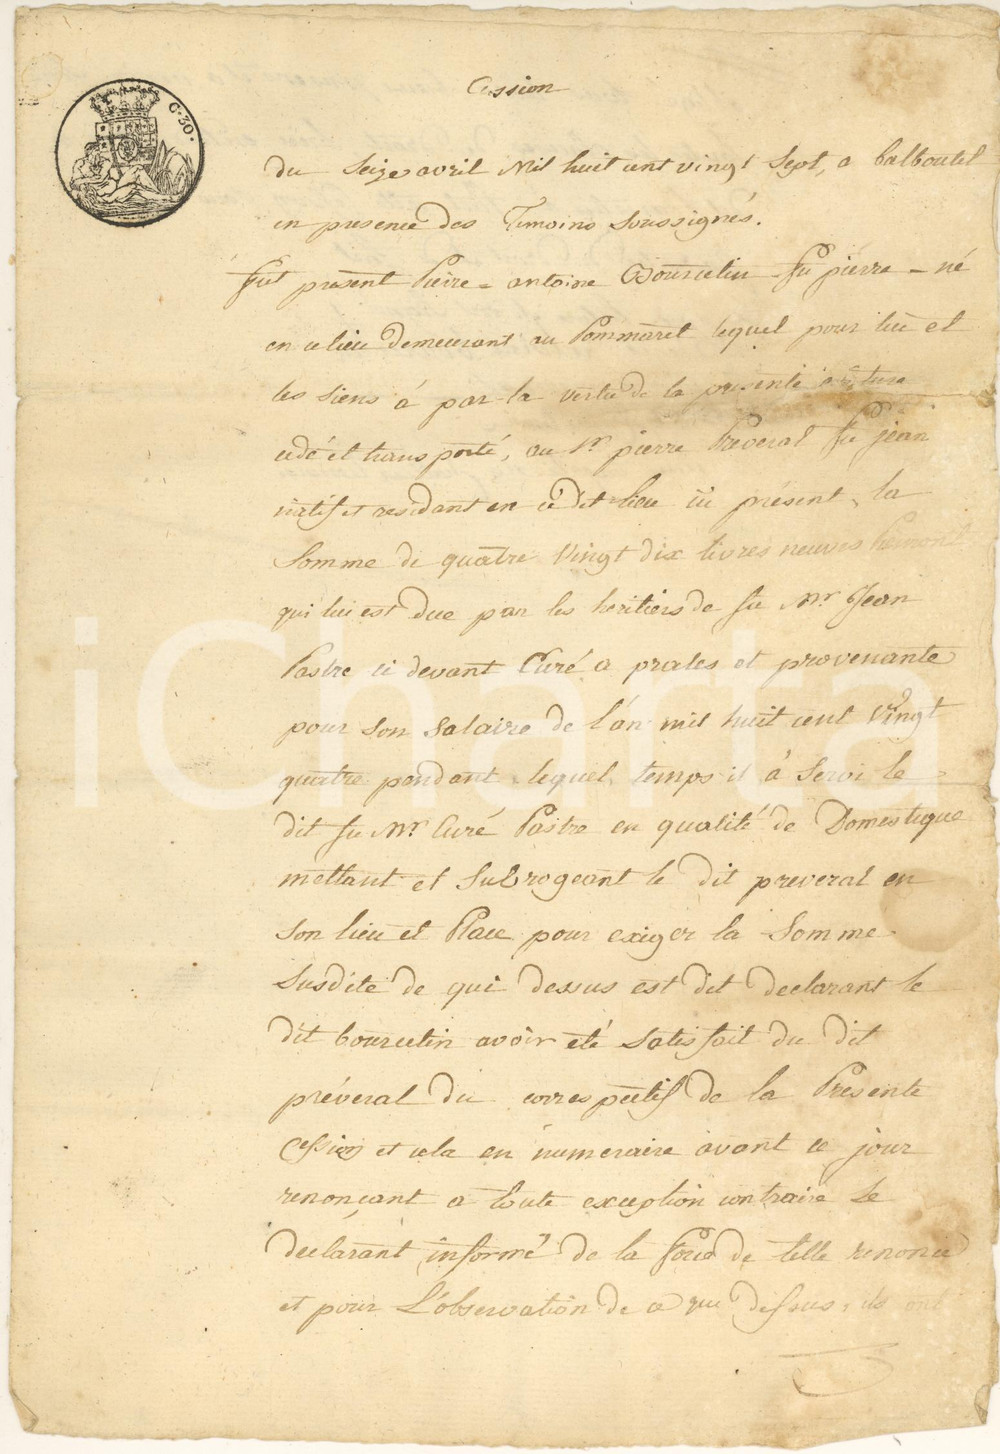 Cession
C. 30.
du Seize avril Mil huit cent vingt Sept, a balboutet
en presence des Temoins Soussignés.
fut present Pierre = antoine Bourcetin fu pierre = né
en ce lieu demeurant au Pommaret lequel pour lui et
les siens á par la vertu de la presente
cedé et transporté, au Sr. pierre Preveral fu jean
natif et residant en ce dit lieu ici présent, la
Somme de quatre Vingt dix livres neuves
qui lui est due par les heritiers de fu Mr. Jean
Pastre ci devant Curé a prales et provenante
pour son Salaire de l'án mil huit cent Vingt
quatre pendant lequel temps il á Servi le
dit fu Mr. Curé Pastre en qualité de Domestique
mettant et Subrogeant le dit preveral en
Son lieu et Place pour exiger la Somme
Susdite de qui dessus est dit declarant le
dit bourcetin avoir été Satisfait du dit
préveral du correspectif de la Presente
Cession et cela en numeraire avant ce jour
renonçant a toute exception contraire Se
declarant informé de la force de telle renonce
et pour L'observation de ce que dessus, ils ont
iCharta